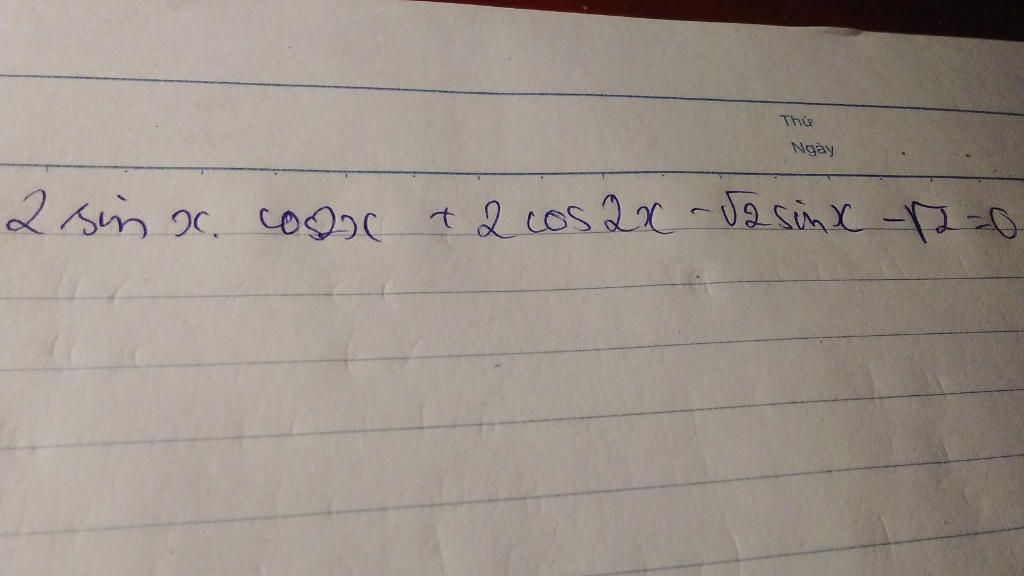 Thứ
Ngày
2 sin x. cos2x + 2 cos 2x - √2 sin x - √2 = 0